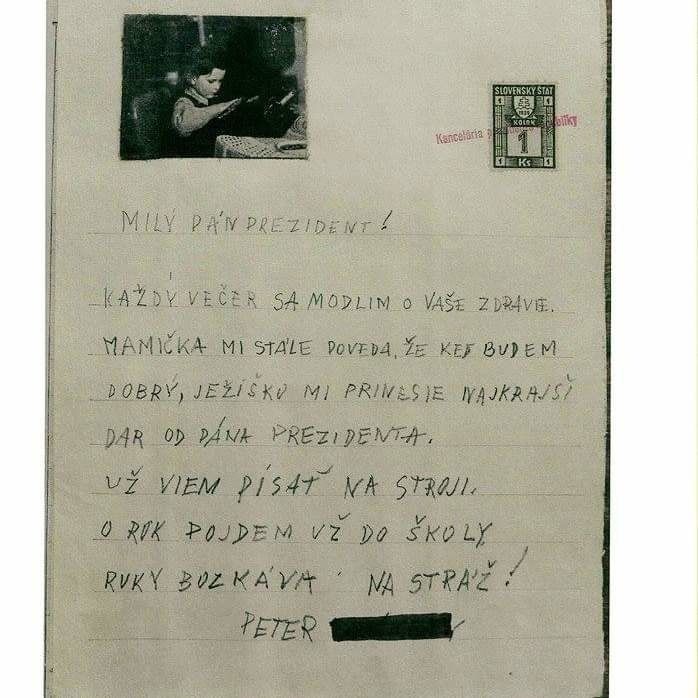 SLOVENSKÝ ŠTÁT
1939
KOLOK
1
Ks
Kancelária
MILÝ PÁN PREZIDENT!
KAŽDÝ VEČER SA MODLIM O VAŠE ZDRAVIE.
MAMIČKA MI STÁLE POVEDA, ŽE KEĎ BUDEM
DOBRÝ, JEŽIŠKO MI PRINESIE NAJKRAJSÍ
DAR OD PÁNA PREZIDENTA.
UŽ VIEM PÍSAŤ NA STROJI.
O ROK POJDEM UŽ DO ŠKOLY
RUKY BOZKÁVA NA STRÁŽ!
PETER